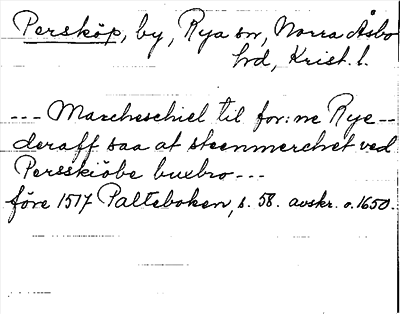 Persköp, by, Rya sn, Norra Åsbo
hd, Krist. l.
--- Marcheschiel til for:ne Rye--
deraff saa at steenmerchet ved
Persskiöbe buebro---
före 1517 Palteboken, s. 58. avskr. o. 1650.